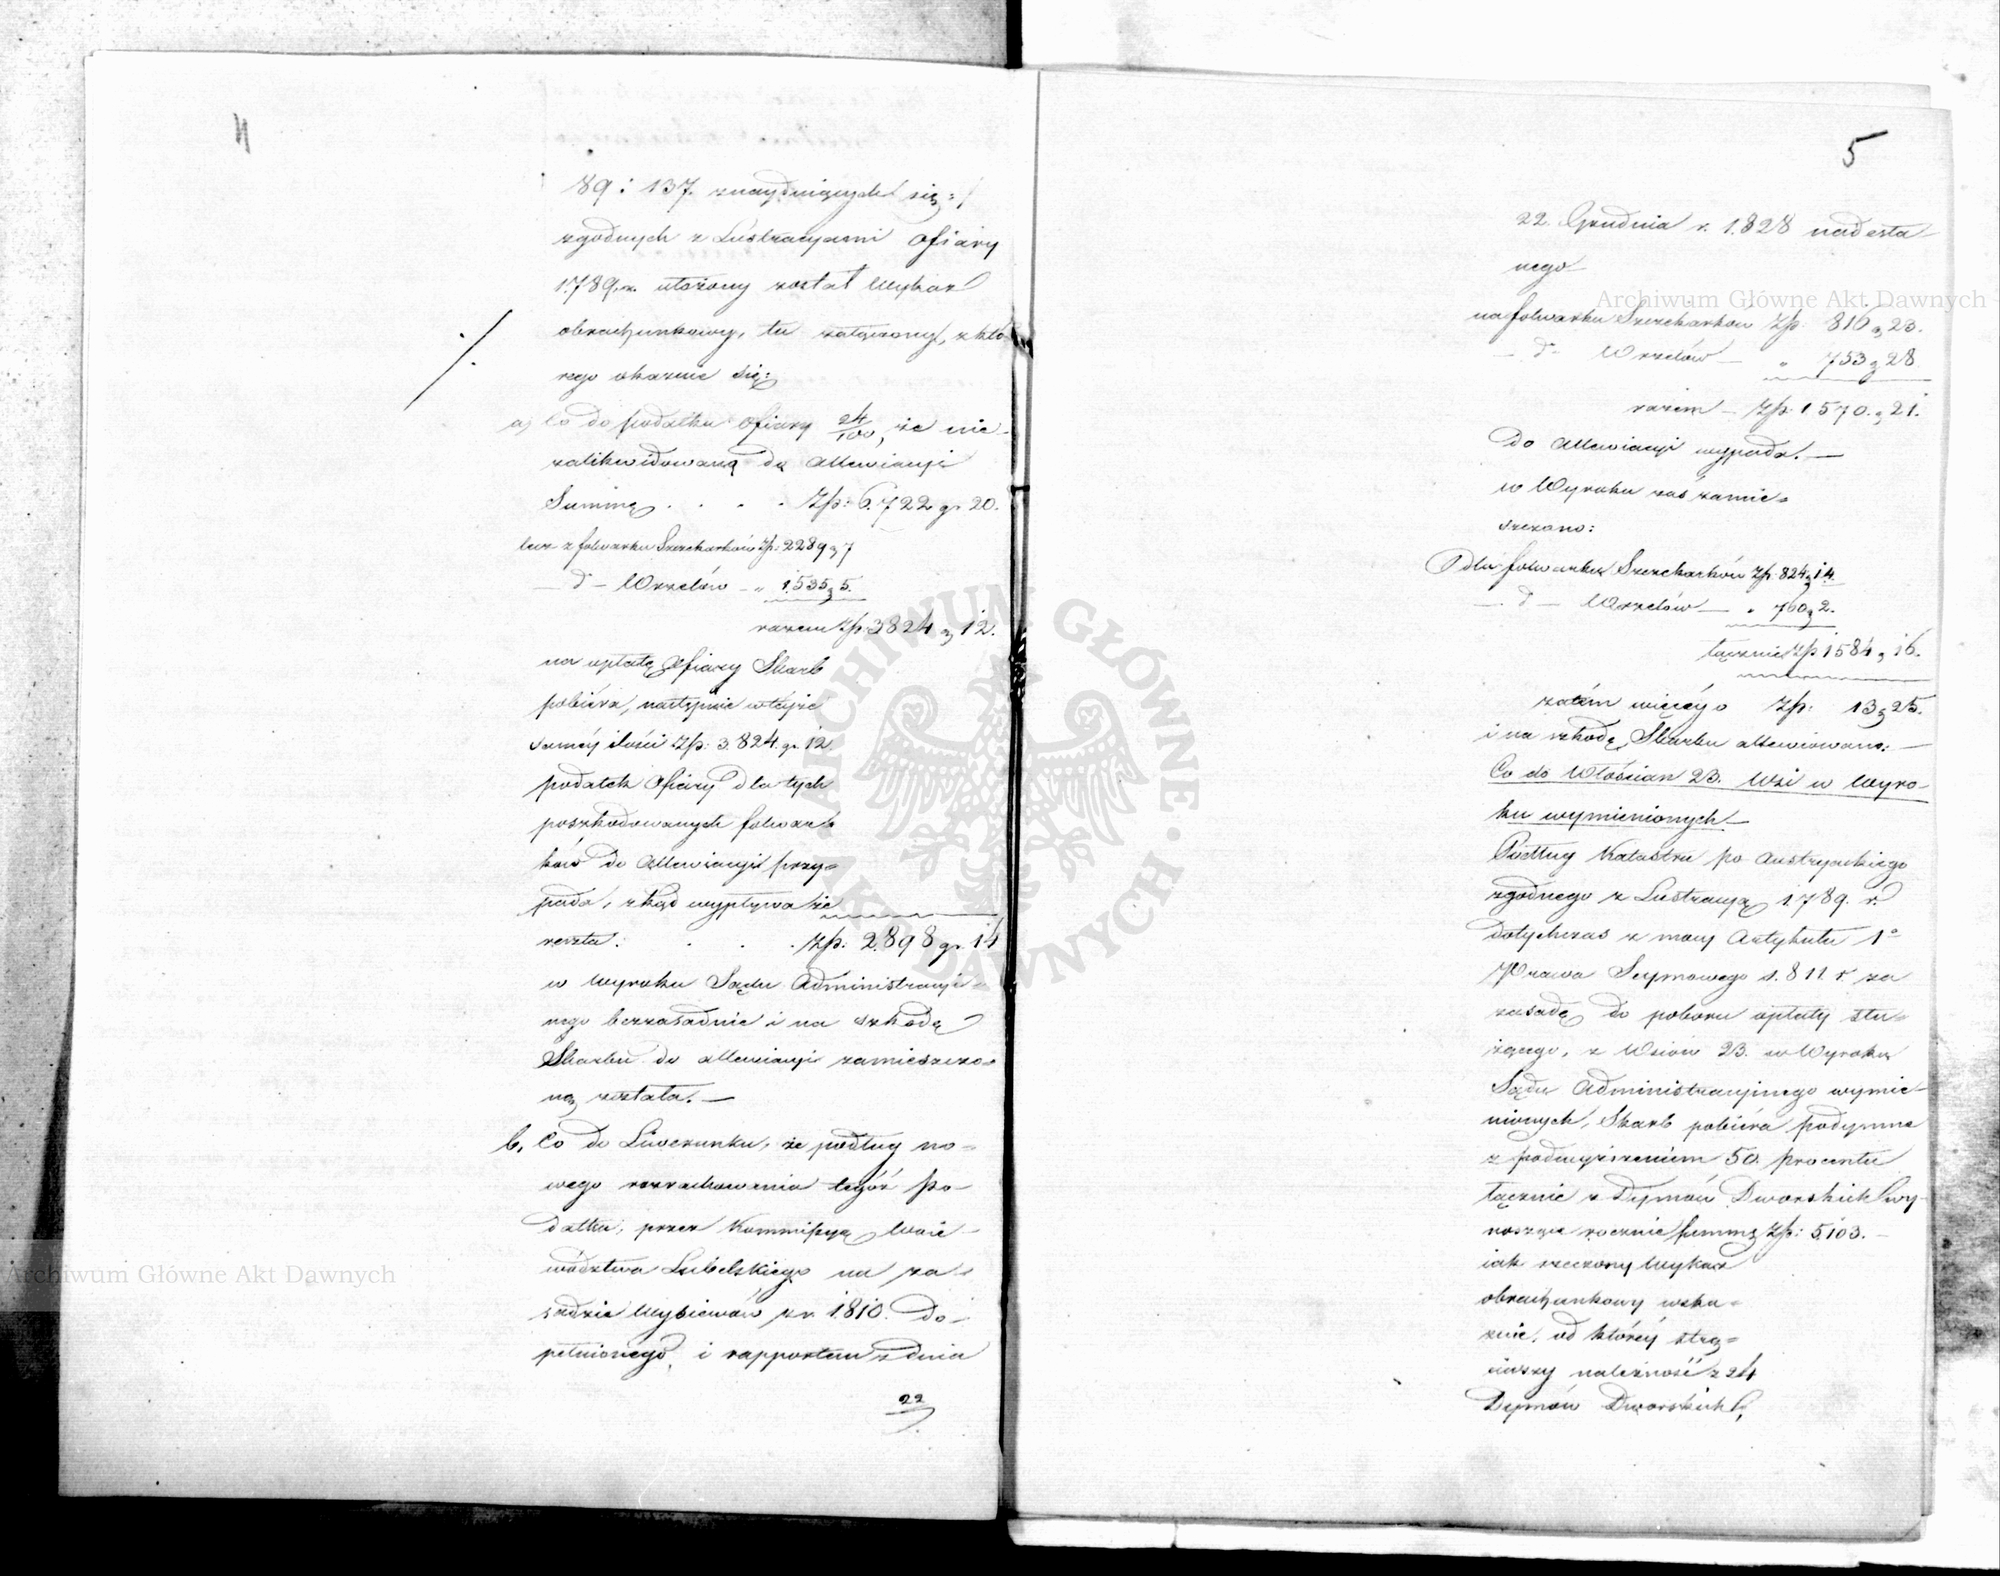 4
89 i 137. znayduiących się:/
zgodnych z Lustracyami Ofiary
1789. r. ułożony został Wykaz
obrachunkowy, tu załączony, z któ-
rego okazuie się:
a, Co do podatku Ofiary 24/100, że nie
zalikwidowaną do Allewiacyi
Summę . . . . Zp: 6.722 gr. 20.
lecz z folwarku Szczekarków Zp: 2289 g 7
— d° — Wrzelów — „ 1.535 g 5.
razem Zp. 3824 g 12.
na opłatę Ofiary Skarb
pobiéra, następnie w téjże
saméy ilości Zp: 3.824. gr. 12
podatek Ofiary dla tych
poszkodowanych folwar-
ków do Allewiacyi przy-
pada, zkąd wypływa że
reszta: . . . Zp: 2.898 gr. 14
w Wyroku Sądu Administracyi-
nego bezzasadnie i na szkodę
Skarbu do allewiacyi zamieszczo-
ną została. —
b, Co do Liwerunku, że podług no-
wego rozrachowania tegóż po-
datku, przez Kommissyą Woie-
wództwa Lubelskiego na za-
sadzie Wysiewów z r. 1810. do-
pełnionego, i rapportem z dnia
22
5
22. Grudnia r. 1.828 nadesła-
nego
na folwarku Szczekarków Zp: 816 g 23.
— d° — Wrzelów — „ 753 g 28
razem — Zp. 1570. g 21.
do Allewiacyi wypada. —
w Wyroku zaś zamie-
szczono:
dla folwarku Szczekarków Zp. 824 g 14.
— d° — Wrzelów — „ 760 g 2.
łącznie Zp 1584 g 16.
zatém więcéy o Zp: 13 g 25.
i na szkodę Skarbu allewiowano: —
Co do Włościan 23. Wsi w Wyro-
ku wymienionych —
Podług Katastru po Austryackiego
zgodnego z Lustracyą 1789. r.
dotychczas z mocy Artykułu 1°
Prawa Seymowego 1.811. r. za
zasadę do poboru opłaty słu-
żącego, z Wsiów 23. w Wyroku
Sądu Administracyinego wymie-
nionych, Skarb pobiéra podymne
z podwyższeniem 50. procentu
łącznie z Dymów Dworskich wy-
noszące rocznie summę Zp: 5.103. —
iak rzeczony Wykaz
obrachunkowy wska-
zuie, od któréy strą-
ciwszy należność z 24
Dymów Dworskich,
Archiwum Główne Akt Dawnych
Archiwum Główne Akt Dawnych
ARCHIWUM GŁÓWNE AKT DAWNYCH